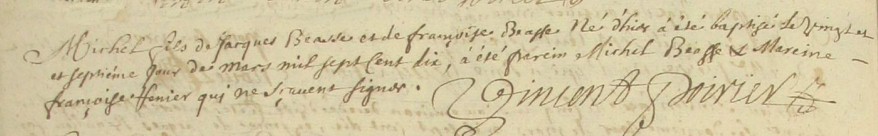 Michel fils de Jacques Beasse et de françoise Beasse Né d'hier à été baptizé le vingt et
et septiéme jour de mars mil sept cent dix, à été parein Michel Beasse & Mareine
françoise ffenier qui ne sçavent signer.
Vincent Poirier